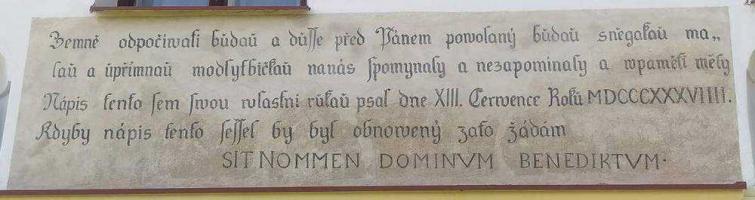 Zemně odpočiwali búdaú a důsse před Pánem powolaný búdaú sněgakaú ma„
laú a úpřimnaú modlytbičkaú nanás spomynaly a nezapominaly a wpaměti měly
Nápis tento sem swou wlastni růkaú psal dne XIII. Čerwence Roků MDCCCXXXVIIII.
Kdyby nápis tento sessel by byl obnowený zato žádám
SIT NOMMEN DOMINVM BENEDIKTVM.